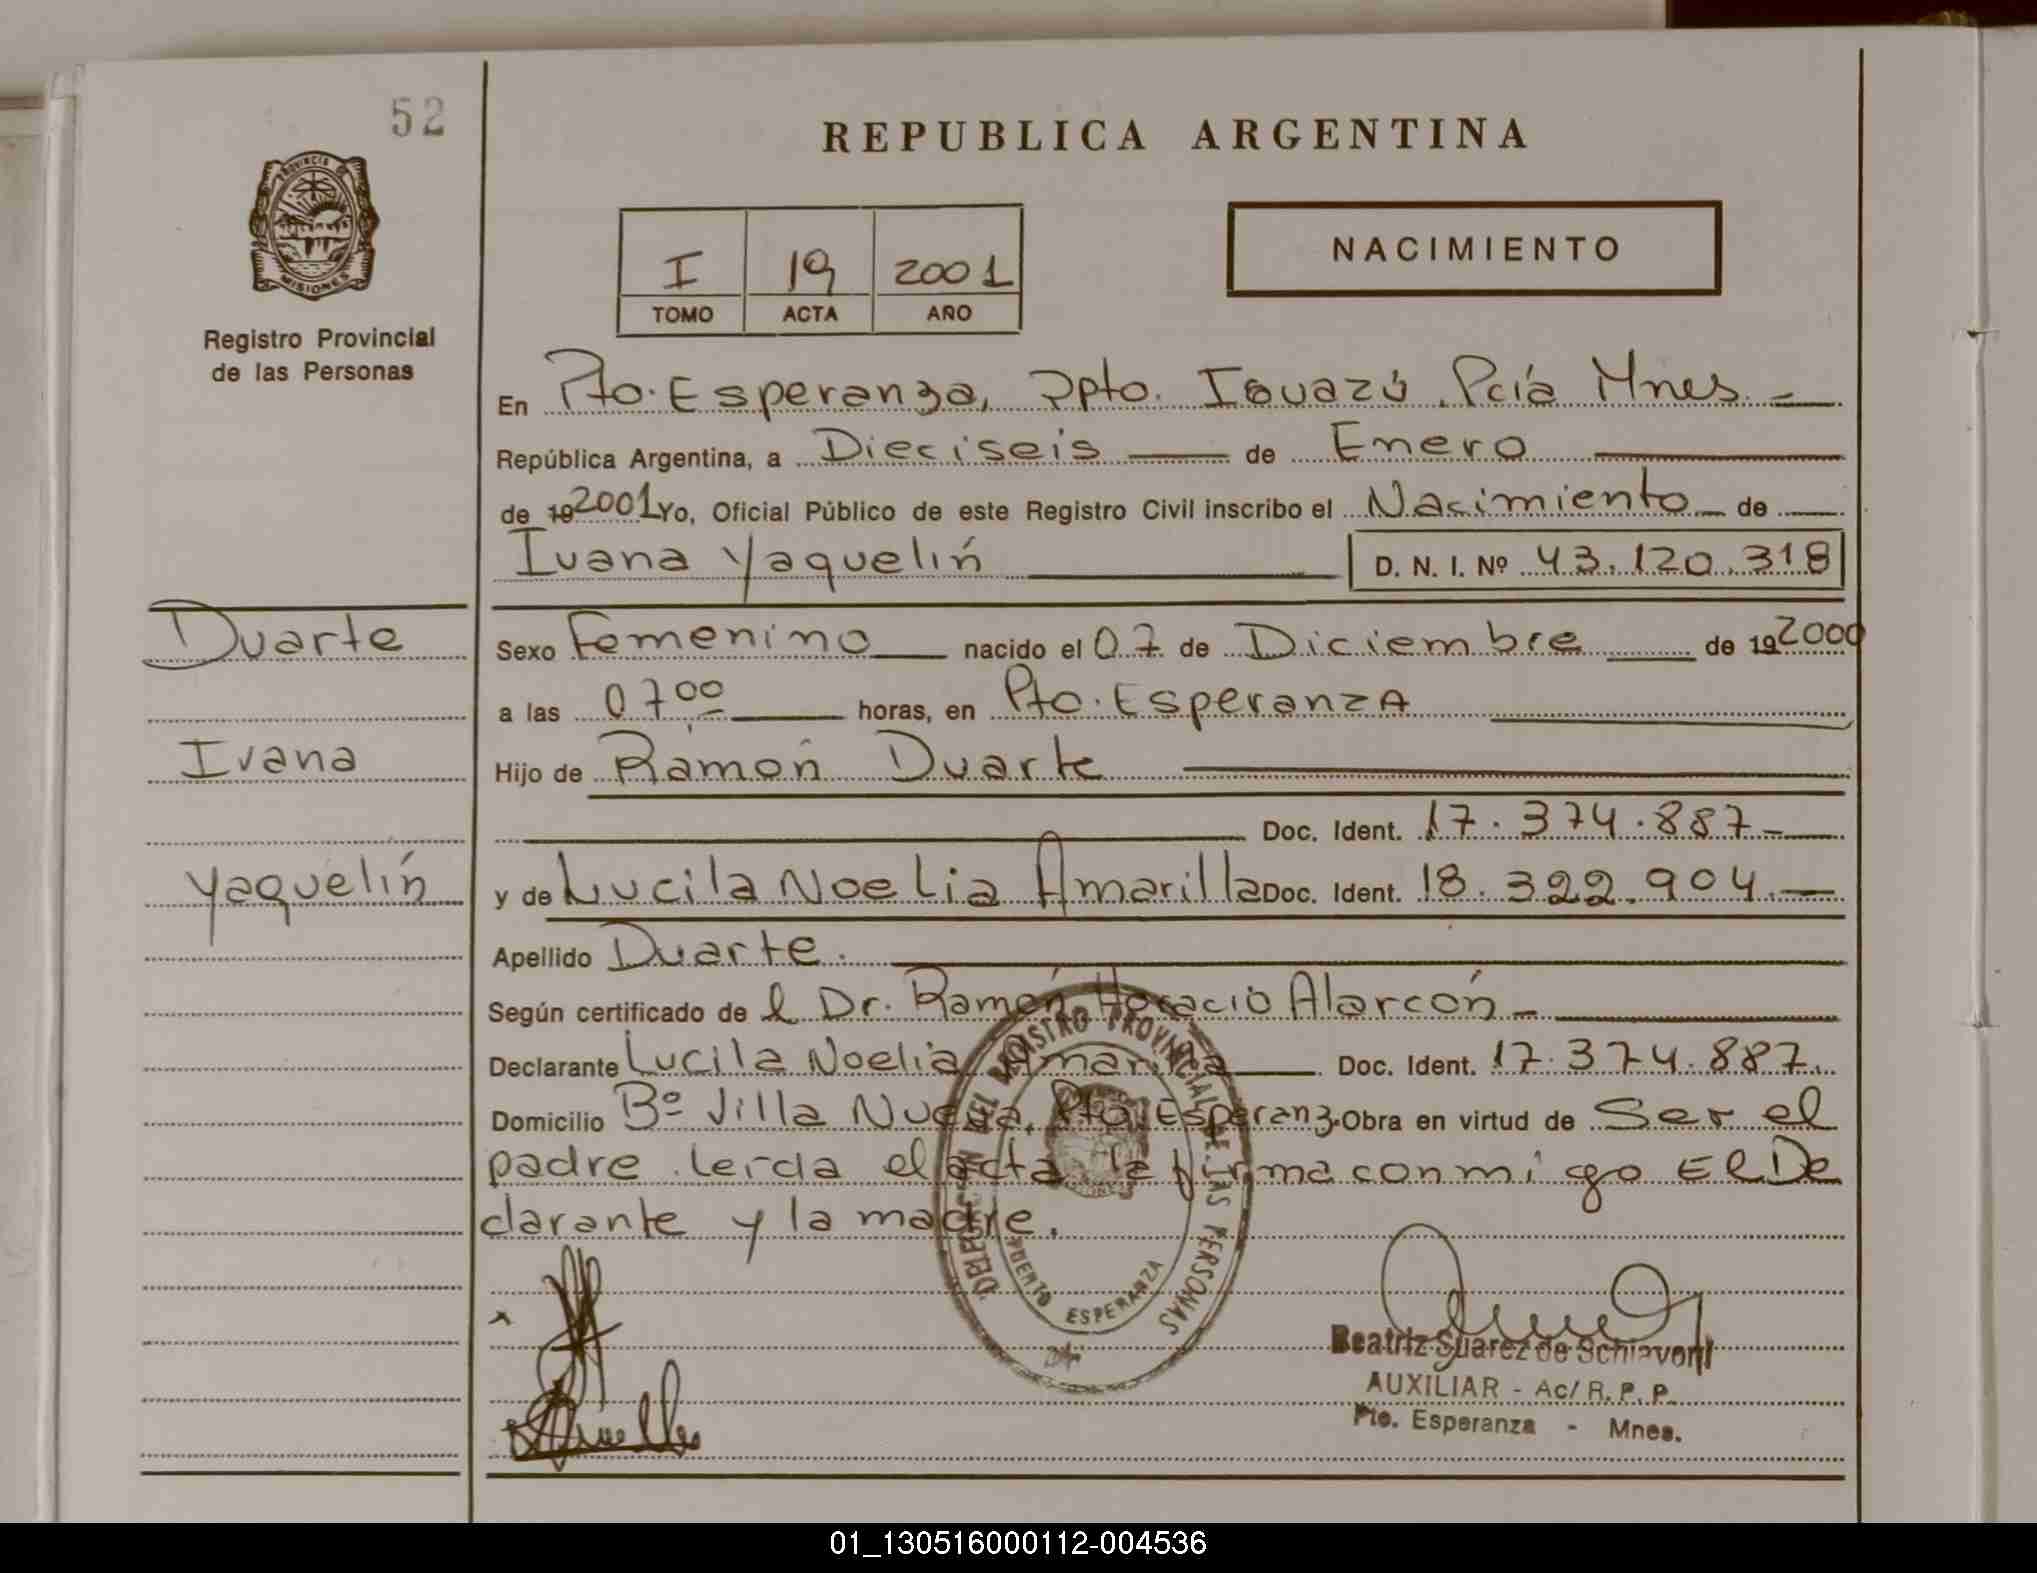 52
REPUBLICA ARGENTINA
PROVINCIA DE
MISIONES
Registro Provincial
de las Personas
I 19 2001
TOMO ACTA AÑO
NACIMIENTO
En Pto. Esperanza, Dpto. Iguazú. Pcía Mnes.
República Argentina, a Dieciseis de Enero
de 19 2001 Yo, Oficial Público de este Registro Civil inscribo el Nacimiento de
Ivana Yaquelín D. N. I. Nº 43.120.318
Duarte
Ivana
Yaquelín
Sexo Femenino nacido el 07 de Diciembre de 19 2000
a las 07 00 horas, en Pto. Esperanza
Hijo de Ramón Duarte
Doc. Ident. 17.374.887-
y de Lucila Noelia Amarilla Doc. Ident. 18.322.904.-
Apellido Duarte.
Según certificado de l Dr. Ramón Horacio Alarcón -
Declarante Lucila Noelia Amarilla Doc. Ident. 17.374.887.
Domicilio Bº Villa Nueva, Pto. Esperanz. Obra en virtud de Ser el
padre. leída el acta la firma conmigo El De
clarante y la madre.
DELEGACION DEL REGISTRO PROVINCIAL DE LAS PERSONAS
PUERTO ESPERANZA
MISIONES
Beatriz Suarez de Schiavoni
AUXILIAR - Ac/ R. P. P.
Pto. Esperanza - Mnes.
01_130516000112-004536